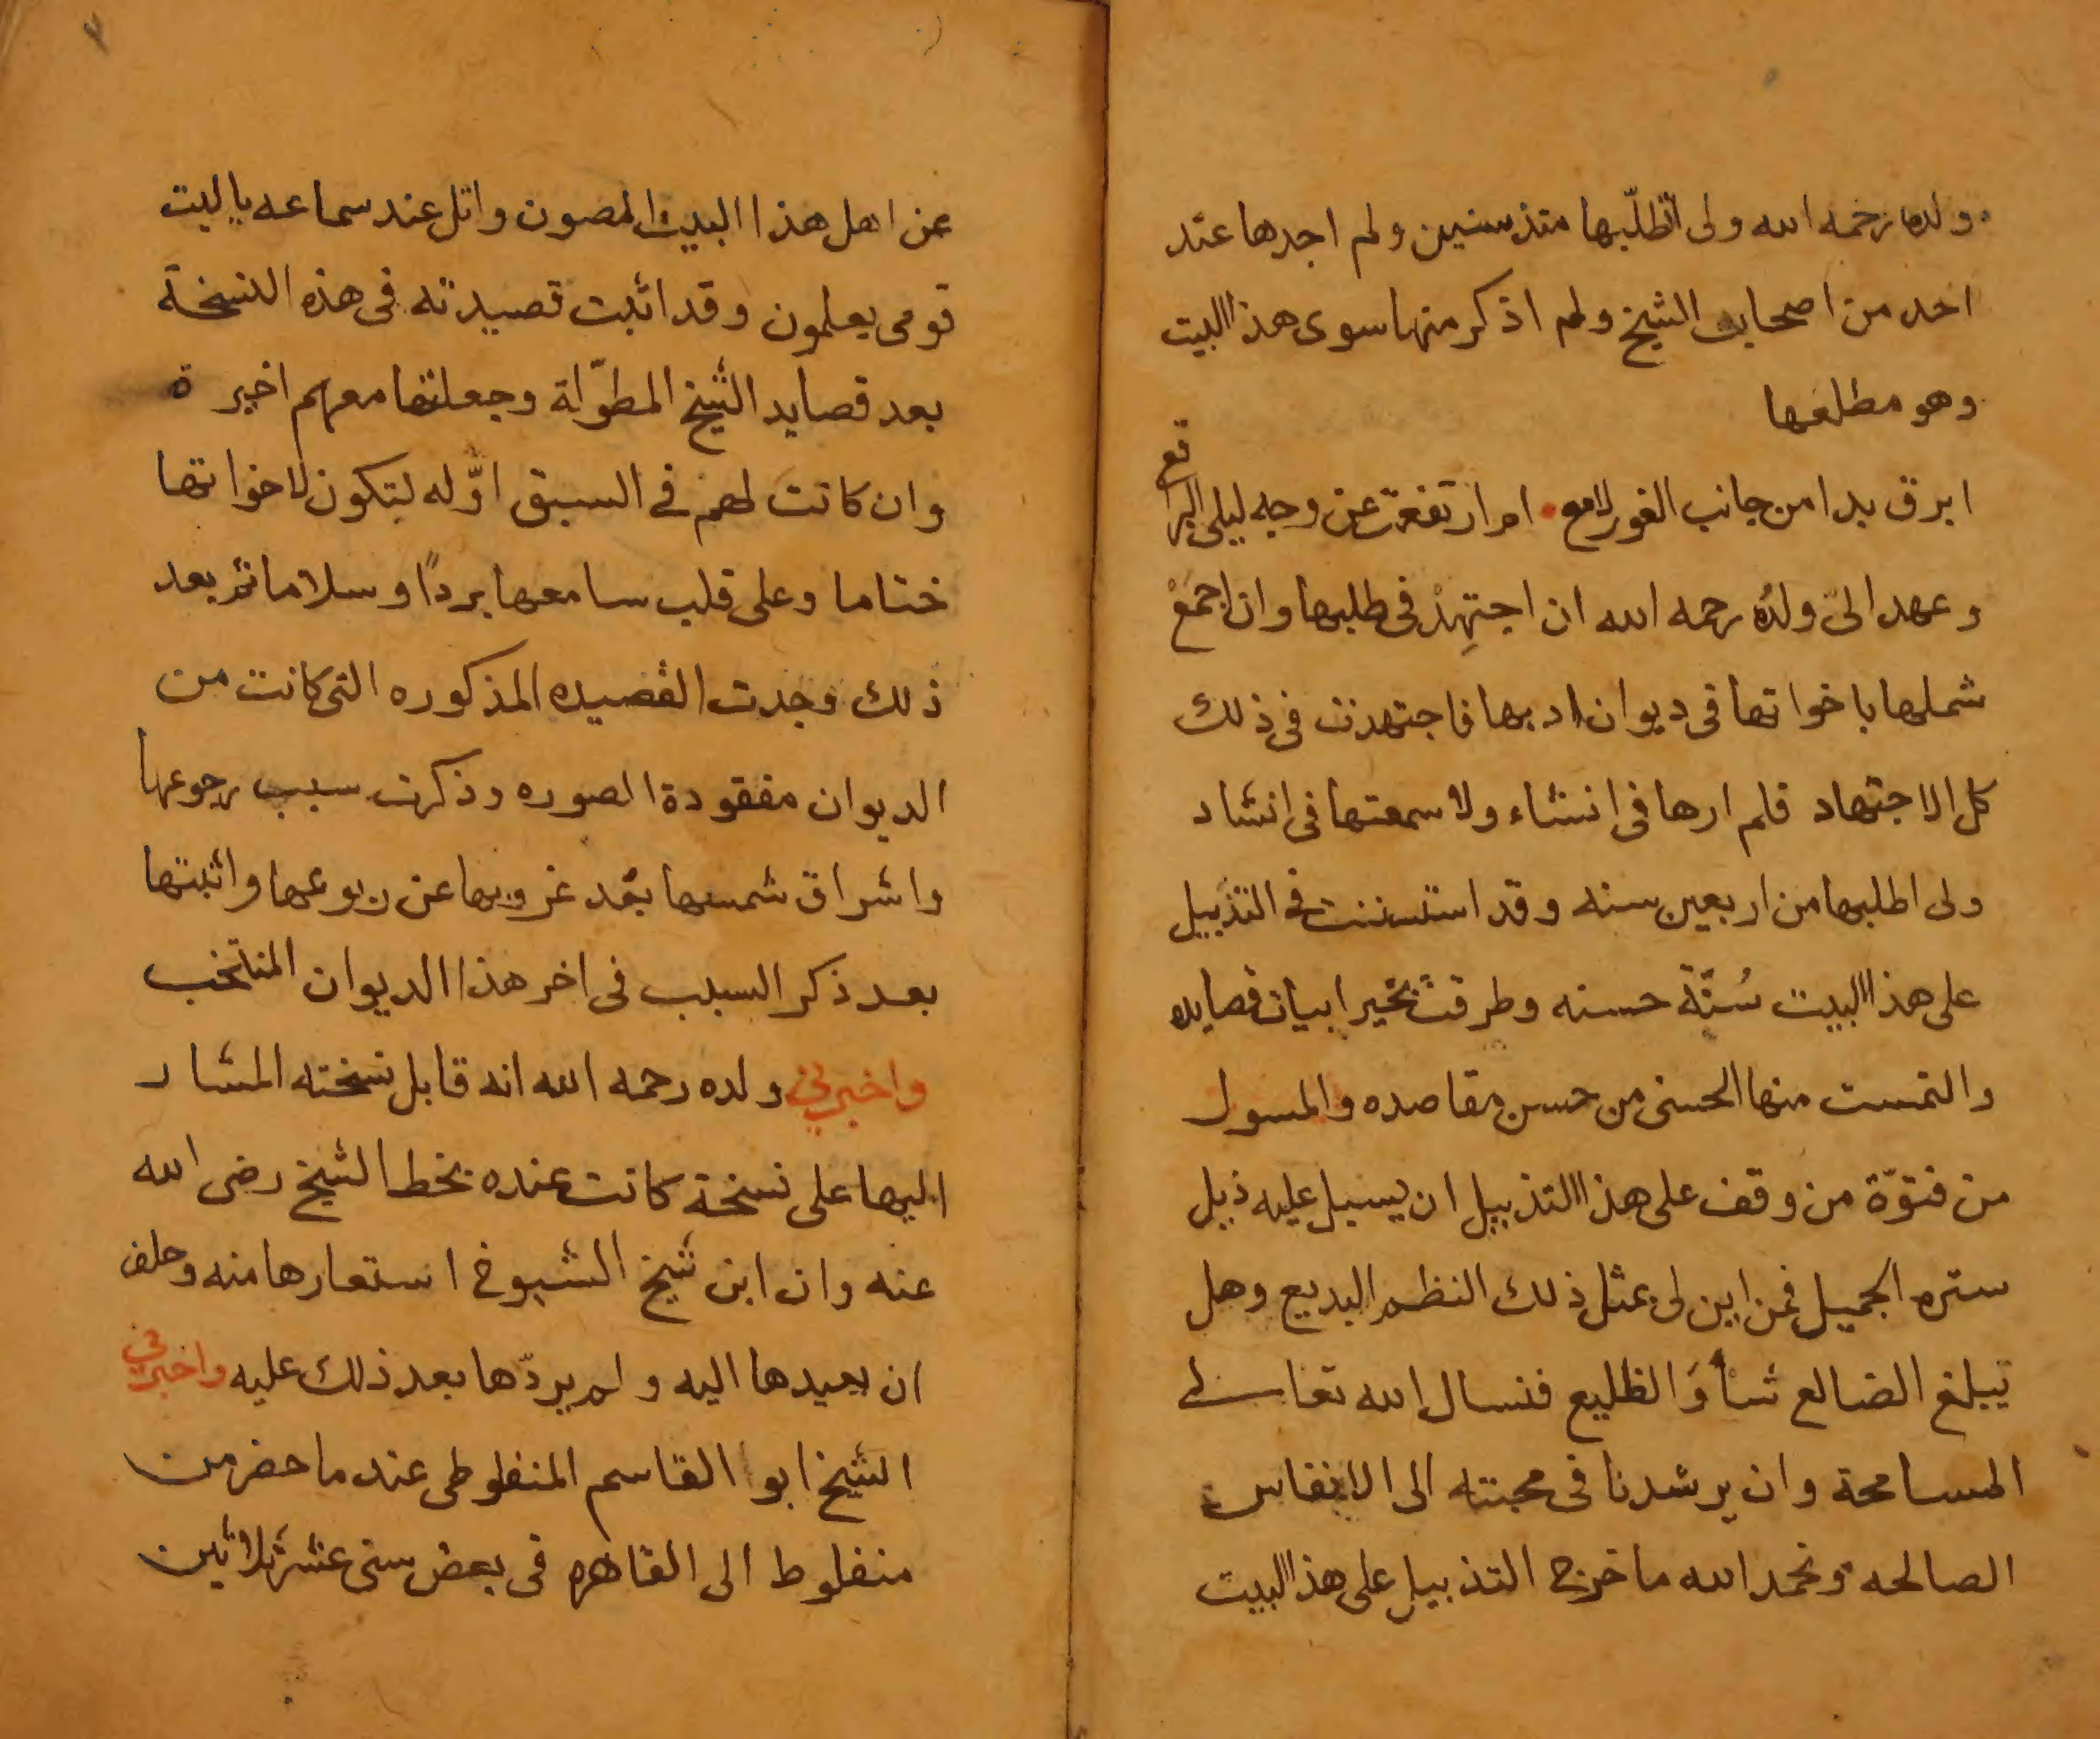 ولده رحمه الله ولى اتطلّبها منذ سنين ولم اجدها عند
احد من اصحاب الشيخ ولم اذكر منها سوى هذا البيت
وهو مطلعها
ابرق بدا من جانب الغور لامع ام ارتفعت عن وجه ليلى البراقع
وعهد الىّ ولدُه رحمه الله ان اجتهِدْ فى طلبها وان اجمَعْ
شملها باخواتها فى ديوان ادبها فاجتهدت فى ذلك
كل الاجتهاد فلم ارها فى انشاء ولا سمعتها فى انشاد
ولى اطلبها من اربعين سنه وقد استسننت فى التذييل
على هذا البيت سُنّة حسنه وطرقت بخير ابيات قصايده
والتمست منها الحسنى من حسن مقاصده والمسول
من فتوّة من وقف على هذا التذييل ان يسبل عليه ذيل
ستره الجميل فمن اين لى بمثل ذلك النظم البديع وهل
يبلغ الضالع شأوَ الظليع فنسال الله تعالى
المسامحة وان يرشدنا فى محبته الى الانفاس
الصالحه ونحمد الله ما خرج التذييل على هذا البيت
عن اهل هذا البيت المصون واتل عند سماعه ياليت
قومى يعلمون وقد اثبت قصيدته فى هذه النسخة
بعد قصايد الشيخ المطوّلة وجعلتها معهم اخيرة
وان كانت لهم فى السبق اوّله لتكون لاخواتها
ختاما وعلى قلب سامعها بردًا وسلاما ثم بعد
ذلك وجدت القصيده المذكوره التى كانت من
الديوان مفقودة الصوره وذكرت سبب رجوعها
واشراق شمسها بعد غروبها عن ربوعها واثبتها
بعد ذكر السبب فى اخر هذا الديوان المنتخب
واخبرنى ولده رحمه الله انه قابل نسخته المشار
اليها على نسخة كانت عنده بخط الشيخ رضى الله
عنه وان ابن شيخ الشيوخ استعارها منه وحلف
ان يعيدها اليه ولم يردّها بعد ذلك عليه واخبرنى
الشيخ ابو القاسم المنفلوطى عند ما حضر من
منفلوط الى القاهره فى بعض سنى عشر ثلاثين